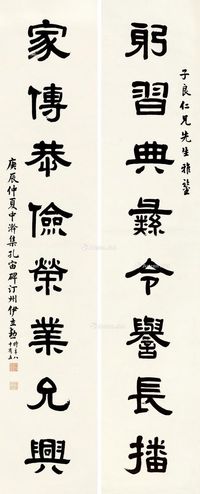 子良仁兄先生雅鑒
躬習典彝令譽長播
家傳恭儉榮業允興
庚辰仲夏中澣集孔宙碑汀州伊立勳時年八十有五